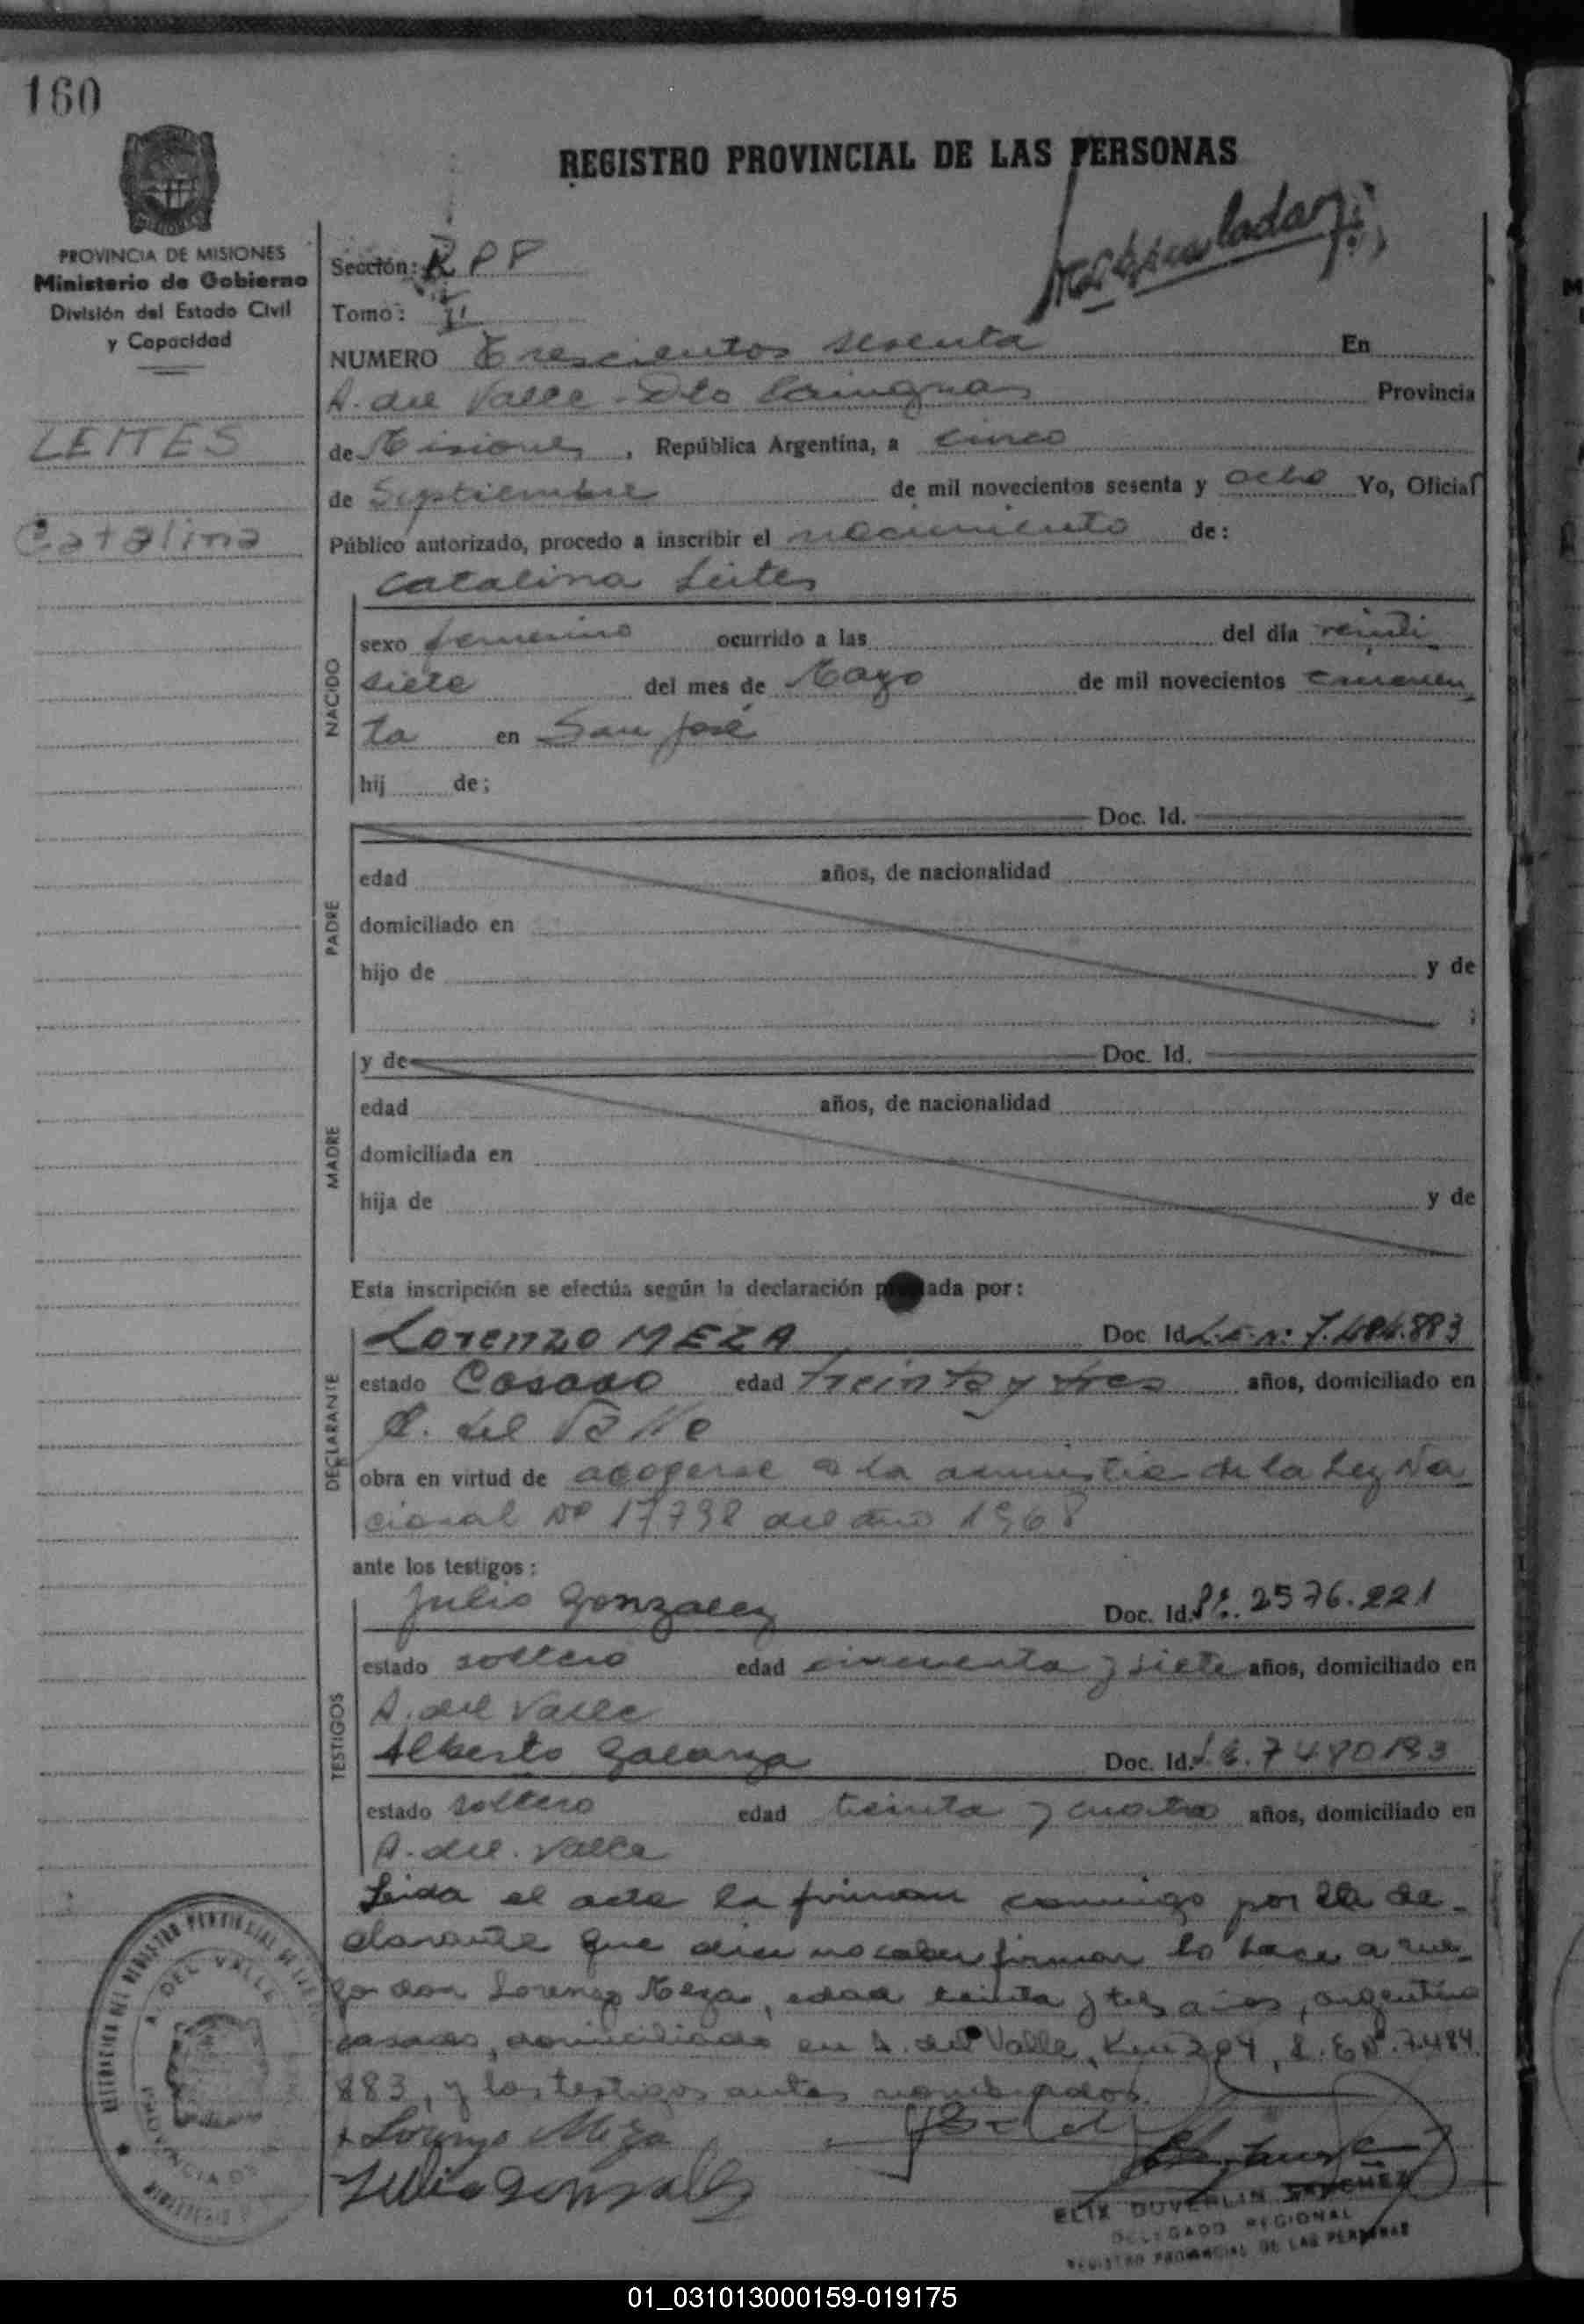 160
REGISTRO PROVINCIAL DE LAS PERSONAS
PROVINCIA DE MISIONES
Ministerio de Gobierno
División del Estado Civil
y Capacidad
LEITES
Catalina
Sección: R P P
Tomo: II
NUMERO Trescientos sesenta En
A. del Valle - Dto Cainguas Provincia
de Misiones, República Argentina, a cinco
de Septiembre de mil novecientos sesenta y ocho Yo, Oficial
Público autorizado, procedo a inscribir el nacimiento de:
Catalina Leites
NACIDO
sexo femenino ocurrido a las del día veinti
siete del mes de Mayo de mil novecientos cuaren
ta en San José
hij de;
PADRE
Doc. Id.
edad años, de nacionalidad
domiciliado en
hijo de y de
;
MADRE
y de Doc. Id.
edad años, de nacionalidad
domiciliada en
hija de y de
Esta inscripción se efectúa según la declaración p ada por:
DECLARANTE
Lorenzo MEZA Doc. Id. L.E. Nº 7.484.883
estado Casado edad treinta y tres años, domiciliado en
A. del Valle
obra en virtud de acogerse a la amnistia de la Ley Na
cional Nº 17798 del año 1968
ante los testigos:
TESTIGOS
Julio Gonzalez Doc. Id. 2576.221
estado soltero edad cincuenta y siete años, domiciliado en
A. del Valle
Alberto Galarza Doc. Id. L.E. 7480193
estado soltero edad treinta y cuatro años, domiciliado en
A. del Valle
Leida el acta la firman conmigo por la de-
clarante que dice no saber firmar lo hace a rue-
go don Lorenzo Meza, edad treinta y tres años, argentino
casado, domiciliado en A. del Valle, Km 204, L.E Nº. 7.484.
883, y los testigos antes nombrados.
Lorenzo Meza
Julio Gonzalez
ELIX DUVERLIN SANCHEZ
DELEGADO REGIONAL
REGISTRO PROVINCIAL DE LAS PERSONAS
A. DEL VALLE
01_031013000159-019175